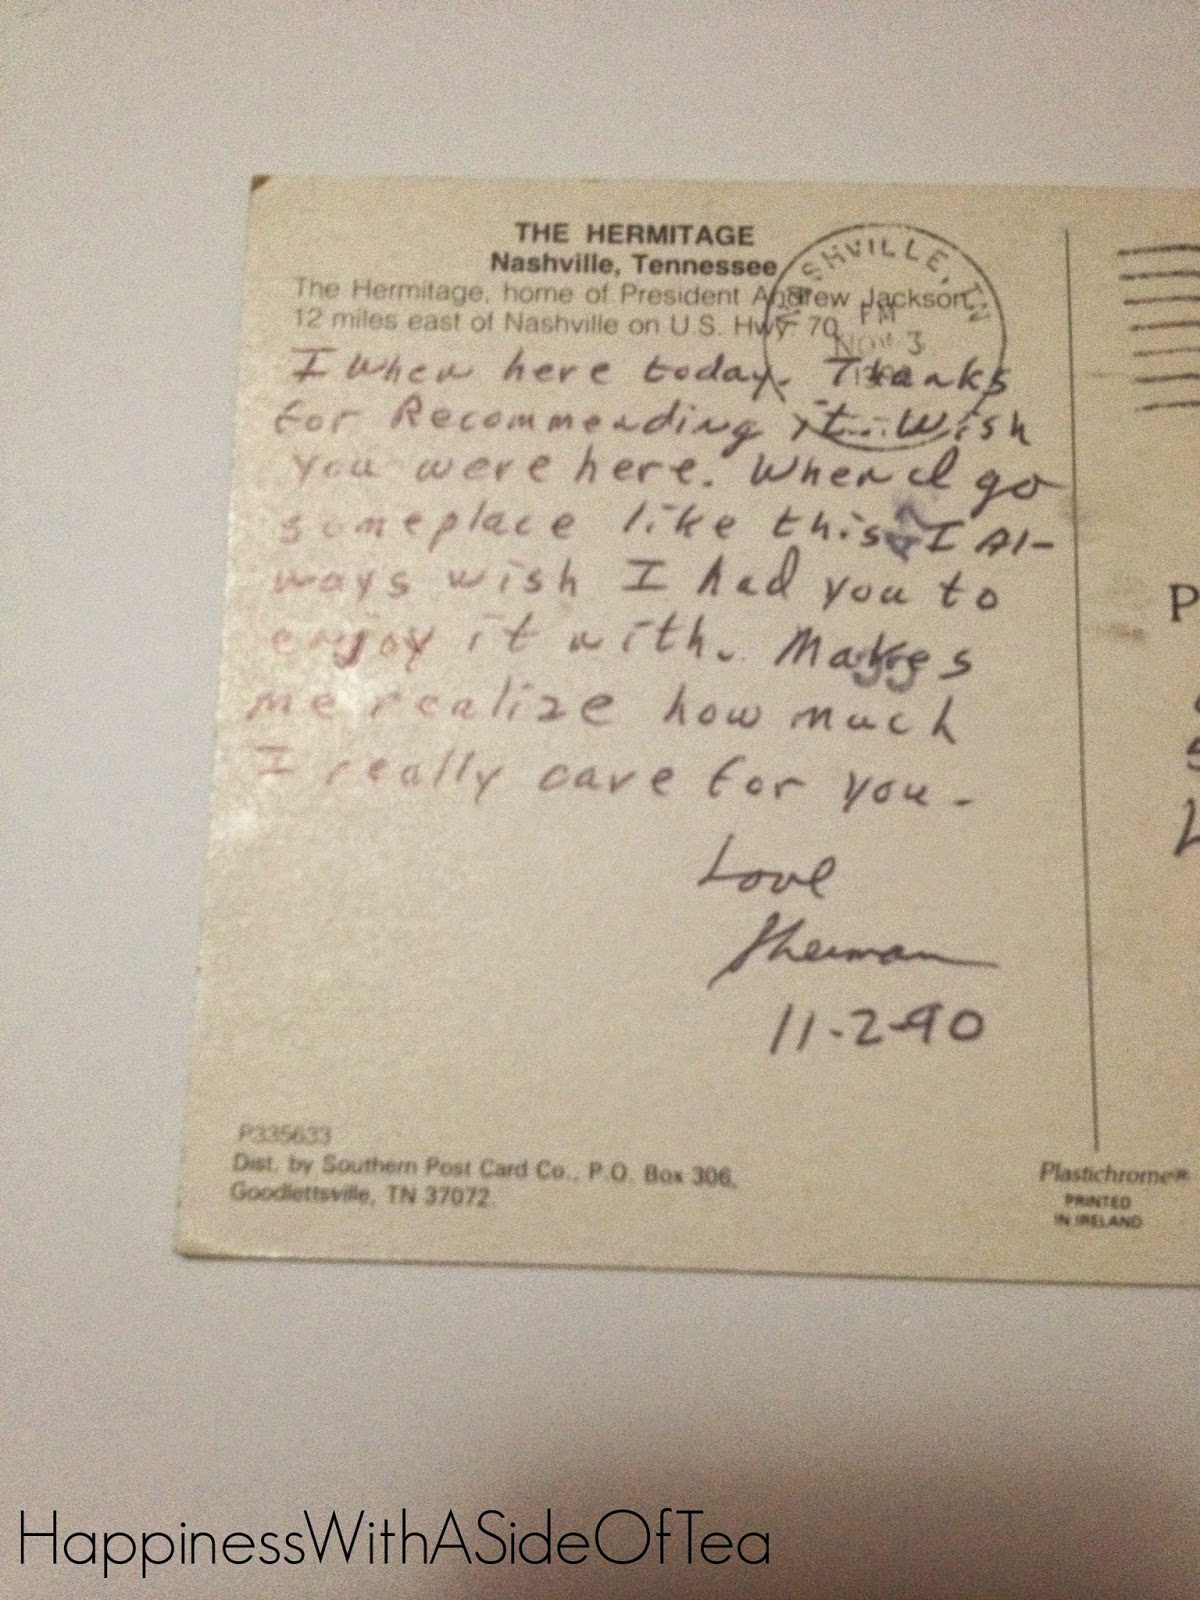 THE HERMITAGE
Nashville, Tennessee
The Hermitage, home of President Andrew Jackson,
12 miles east of Nashville on U.S. Hwy. 70
SHVILLE, TN
PM
NOV 3
I when here today. Thanks
for Recommending it. Wish
you were here. When I go
someplace like this I Al-
ways wish I had you to
enjoy it with. Makes
me realize how much
I really care for you -
Love
Sherman
11-2-90
P335633
Dist. by Southern Post Card Co., P.O. Box 306,
Goodlettsville, TN 37072
Plastichrome®
PRINTED
IN IRELAND
P
HappinessWithASideOfTea